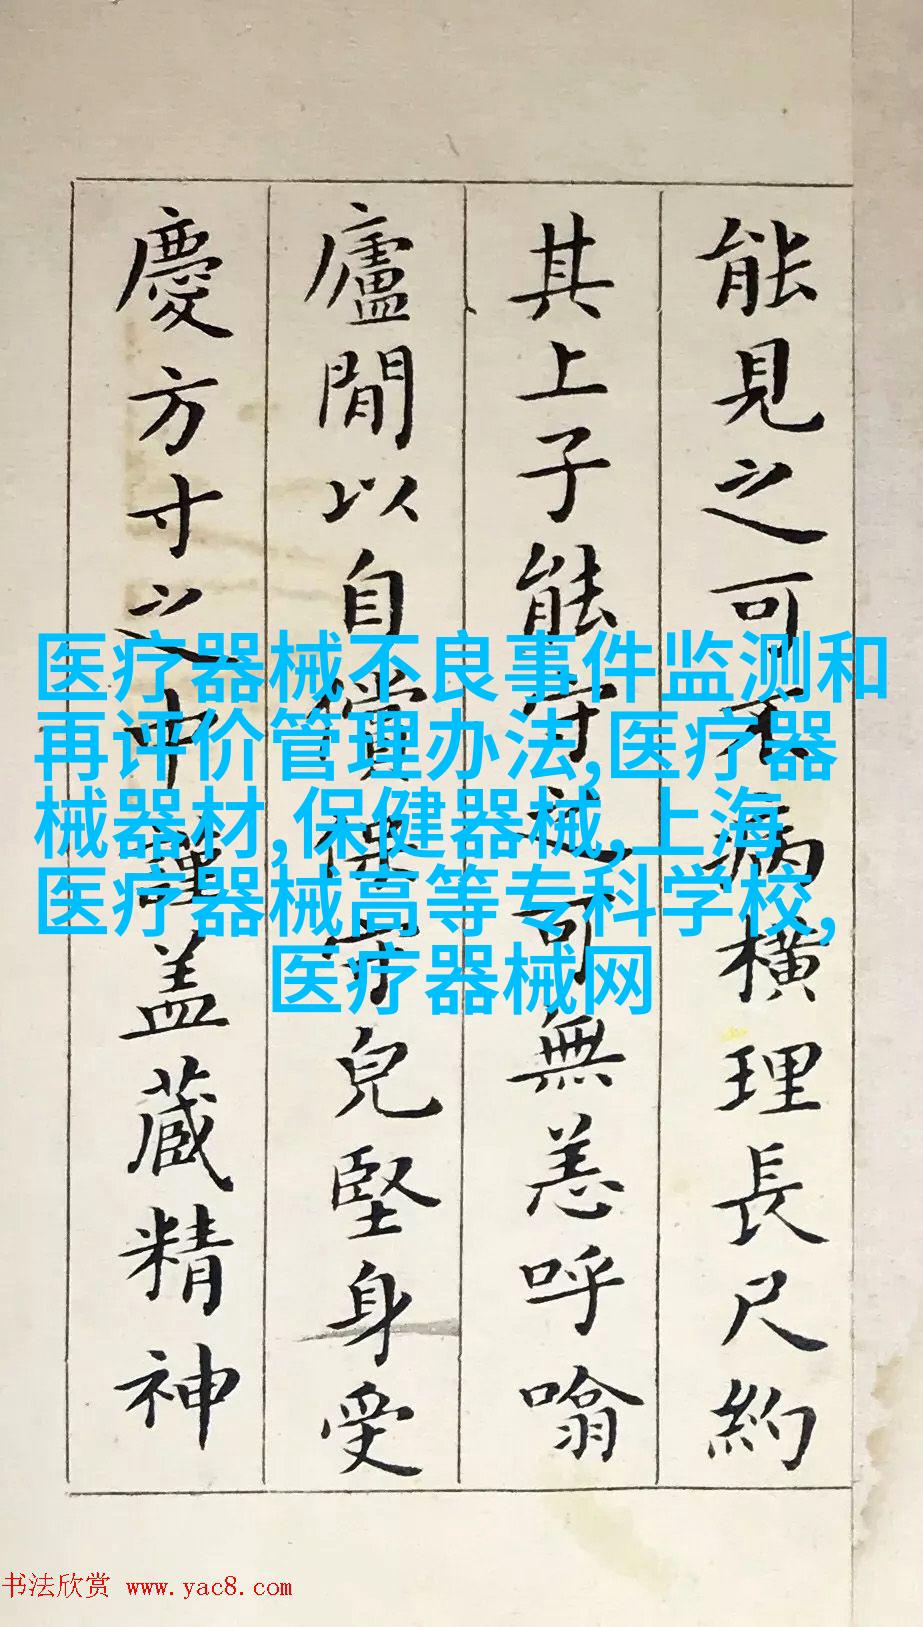 能見之可不病橫理長尺約
其上子能守之可無恙呼噏
廬閒以自償保守兒堅身受
慶方寸之中謹盖藏精神
医疗器械不良事件监测和
再评价管理办法,医疗器
械器材,保健器械,上海
医疗器械高等专科学校,
医疗器械网
书法欣赏 www.yac8.com